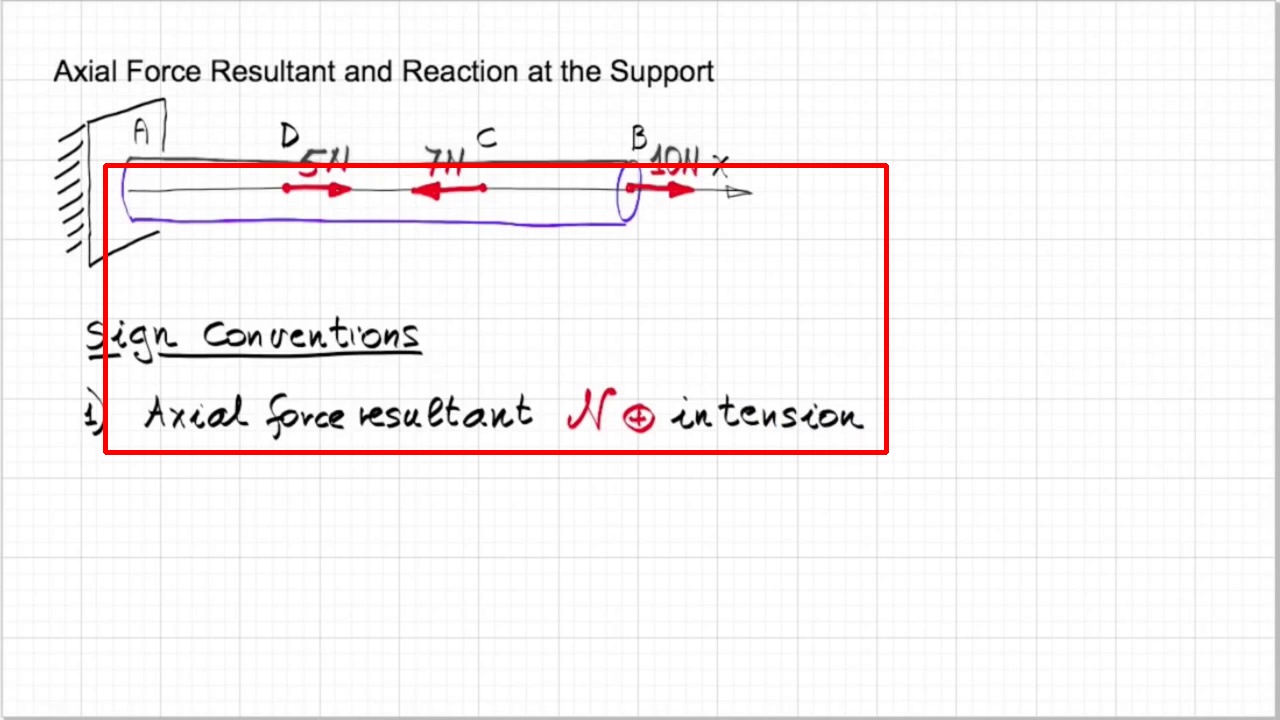 Axial Force Resultant and Reaction at the Support
A D C B
5N 7N 10N x
Sign Conventions
1) Axial force resultant N ⊕ in tension